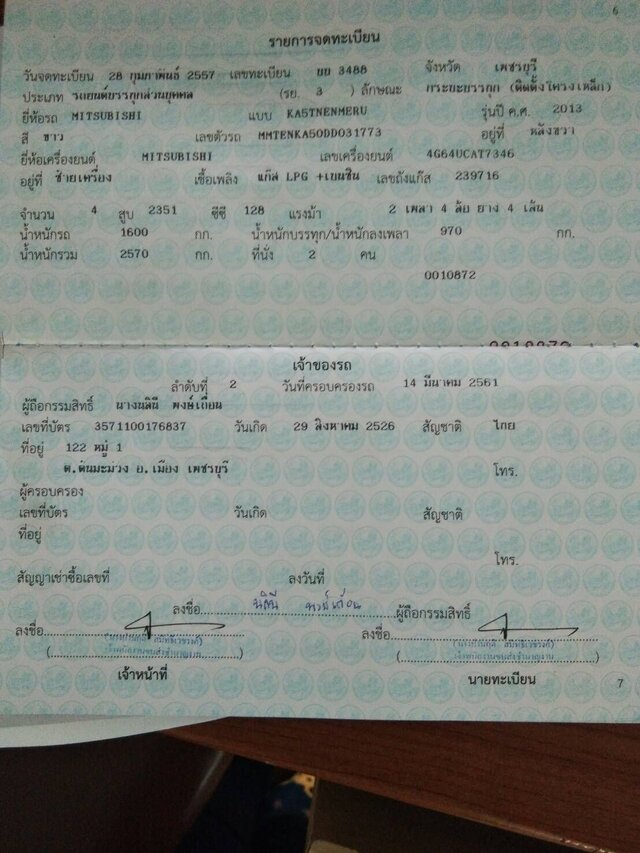 6
รายการจดทะเบียน
วันจดทะเบียน 28 กุมภาพันธ์ 2557 เลขทะเบียน บบ 3488 จังหวัด เพชรบุรี
ประเภท รถยนต์บรรทุกส่วนบุคคล (รย. 3 ) ลักษณะ กระบะบรรทุก (ติดตั้งโครงเหล็ก)
ยี่ห้อรถ MITSUBISHI แบบ KA5TNENMERU รุ่นปี ค.ศ. 2013
สี ขาว เลขตัวรถ MMTENKA50DD031773 อยู่ที่ หลังขวา
ยี่ห้อเครื่องยนต์ MITSUBISHI เลขเครื่องยนต์ 4G64UCAT7346
อยู่ที่ ซ้ายเครื่อง เชื้อเพลิง แก๊ส LPG +เบนซิน เลขถังแก๊ส 239716
จำนวน 4 สูบ 2351 ซีซี 128 แรงม้า 2 เพลา 4 ล้อ ยาง 4 เส้น
น้ำหนักรถ 1600 กก. น้ำหนักบรรทุก/น้ำหนักลงเพลา 970 กก.
น้ำหนักรวม 2570 กก. ที่นั่ง 2 คน
0010872
เจ้าของรถ
ลำดับที่ 2 วันที่ครอบครองรถ 14 มีนาคม 2561
ผู้ถือกรรมสิทธิ์ นางนลินี พงษ์เถื่อน
เลขที่บัตร 3571100176837 วันเกิด 29 สิงหาคม 2526 สัญชาติ ไทย
ที่อยู่ 122 หมู่ 1
ต.ต้นมะม่วง อ.เมือง เพชรบุรี โทร.
ผู้ครอบครอง
เลขที่บัตร วันเกิด สัญชาติ
ที่อยู่
โทร.
สัญญาเช่าซื้อเลขที่ ลงวันที่
ลงชื่อ นลินี พงษ์เถื่อน ผู้ถือกรรมสิทธิ์
ลงชื่อ ลงชื่อ
เจ้าหน้าที่ นายทะเบียน
7